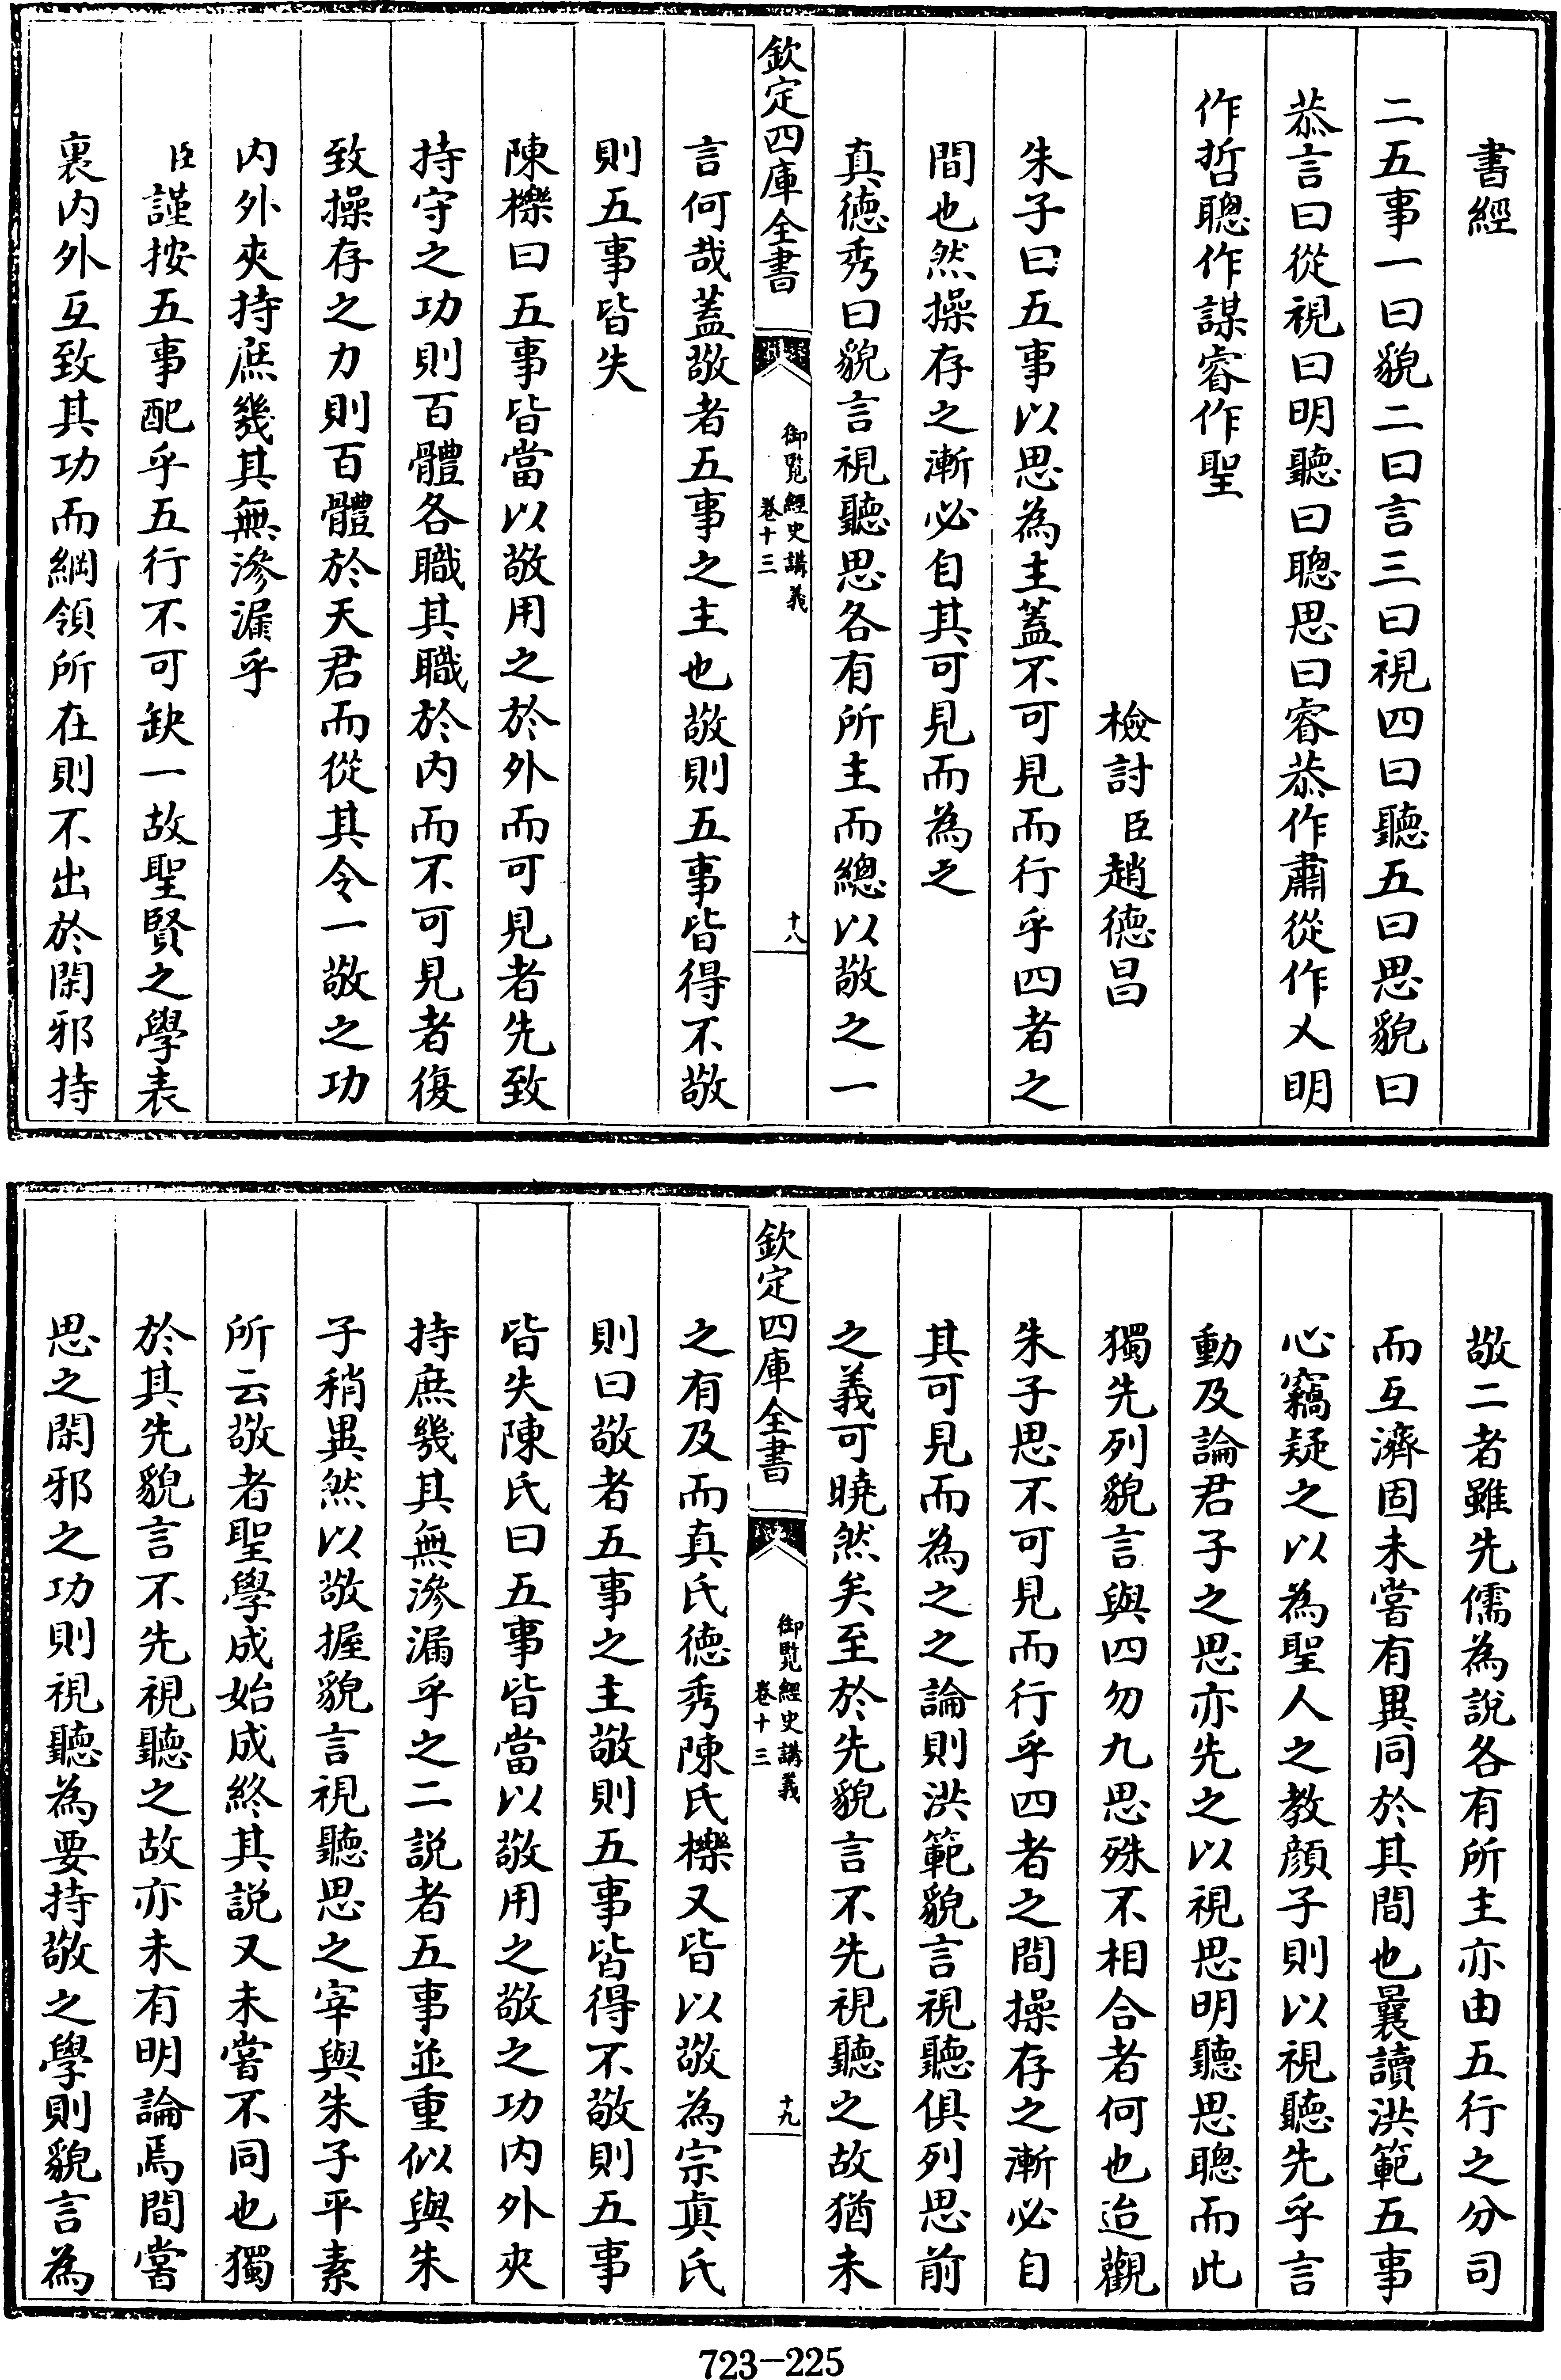 書經
二五事一曰貌二曰言三曰視四曰聽五曰思貌曰
恭言曰從視曰明聽曰聰思曰睿恭作肅從作乂明
作哲聰作謀睿作聖
檢討臣趙德昌
朱子曰五事以思為主蓋不可見而行乎四者之
間也然操存之漸必自其可見而為之
真德秀曰貌言視聽思各有所主而總以敬之一
欽定四庫全書
御覽經史講義
卷十三
十八
言何哉蓋敬者五事之主也敬則五事皆得不敬
則五事皆失
陳櫟曰五事皆當以敬用之於外而可見者先致
持守之功則百體各職其職於内而不可見者復
致操存之力則百體於天君而從其令一敬之功
内外夾持庶幾其無滲漏乎
臣謹按五事配乎五行不可缺一故聖賢之學表
裏内外互致其功而綱領所在則不出於閑邪持
敬二者雖先儒為說各有所主亦由五行之分司
而互濟固未嘗有異同於其間也曩讀洪範五事
心竊疑之以為聖人之教顔子則以視聽先乎言
動及論君子之思亦先之以視思明聽思聰而此
獨先列貌言與四勿九思殊不相合者何也迨觀
朱子思不可見而行乎四者之間操存之漸必自
其可見而為之之論則洪範貌言視聽俱列思前
之義可曉然矣至於先貌言不先視聽之故猶未
欽定四庫全書
御覽經史講義
卷十三
十九
之有及而真氏德秀陳氏櫟又皆以敬為宗真氏
則曰敬者五事之主敬則五事皆得不敬則五事
皆失陳氏曰五事皆當以敬用之敬之功内外夾
持庶幾其無滲漏乎之二説者五事並重似與朱
子稍異然以敬握貌言視聽思之宰與朱子平素
所云敬者聖學成始成終其説又未嘗不同也獨
於其先貌言不先視聽之故亦未有明論焉間嘗
思之閑邪之功則視聽為要持敬之學則貌言為
723-225